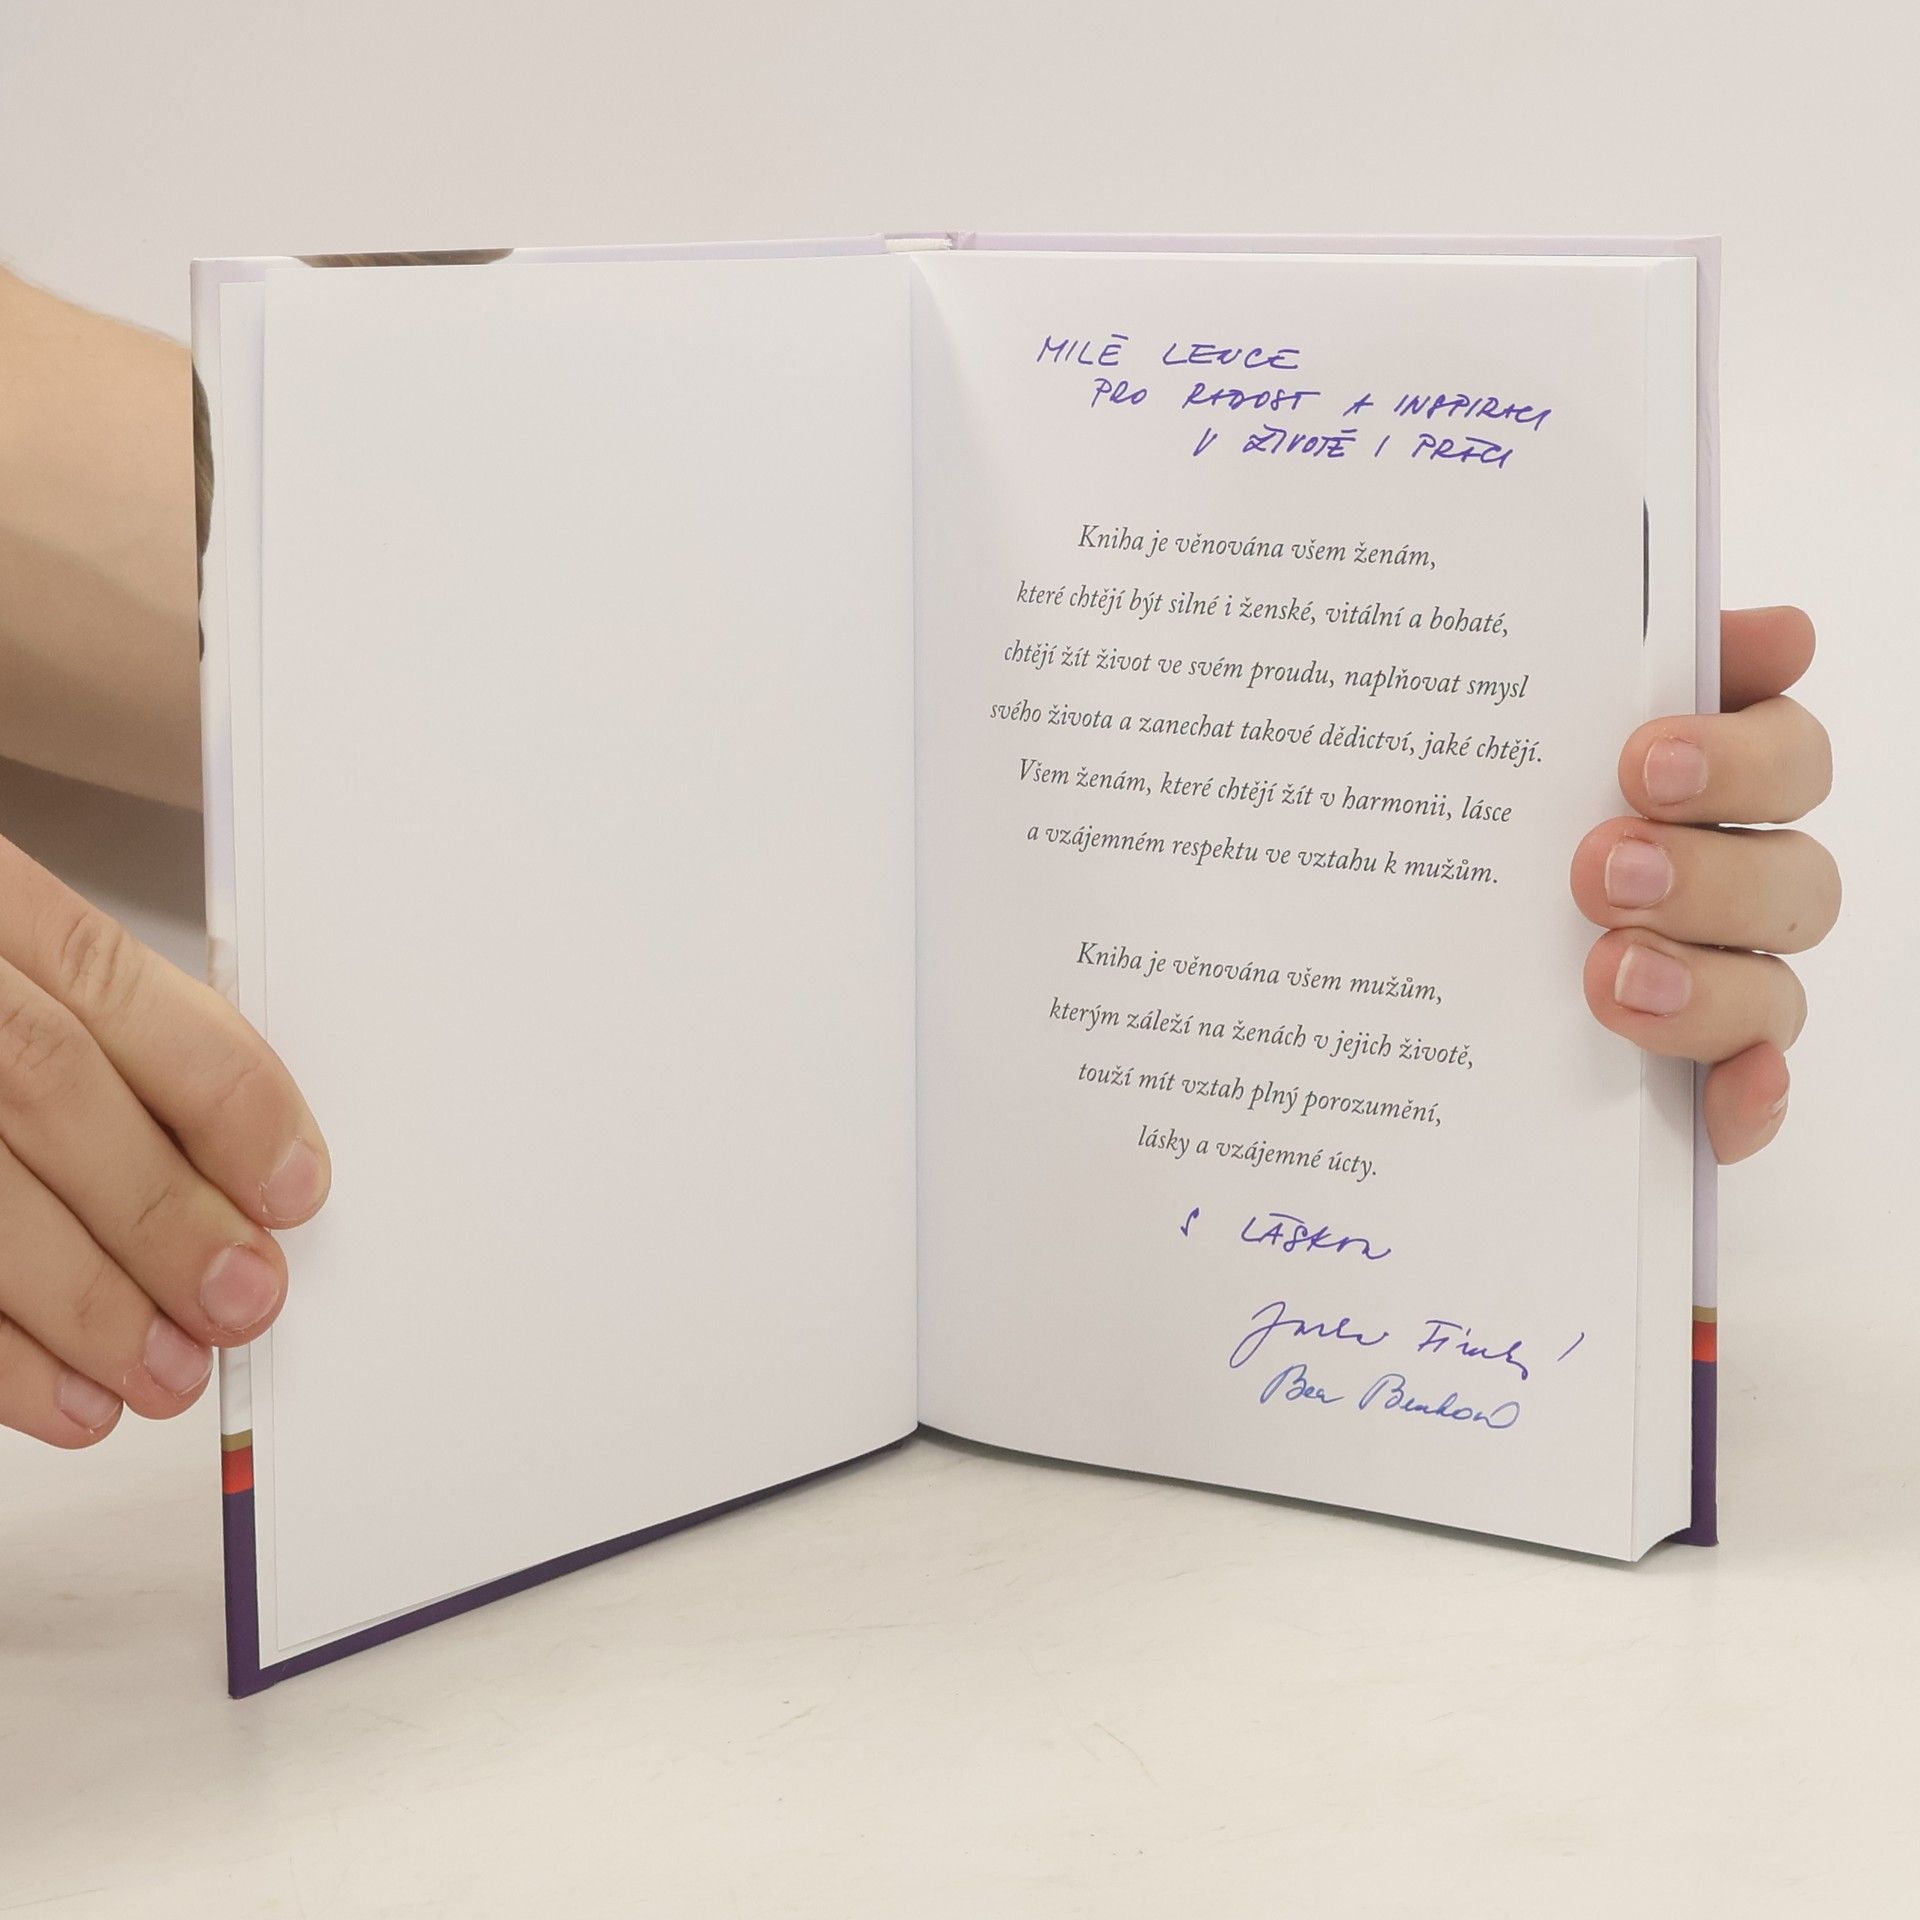 MILÉ LENCE
PRO RADOST A INSPIRACI
V ŽIVOTĚ I PRÁCI
Kniha je věnována všem ženám,
které chtějí být silné i ženské, vitální a bohaté,
chtějí žít život ve svém proudu, naplňovat smysl
svého života a zanechat takové dědictví, jaké chtějí.
Všem ženám, které chtějí žít v harmonii, lásce
a vzájemném respektu ve vztahu k mužům.
Kniha je věnována všem mužům,
kterým záleží na ženách v jejich životě,
touží mít vztah plný porozumění,
lásky a vzájemné úcty.
S LÁSKOU
Bea Benkova